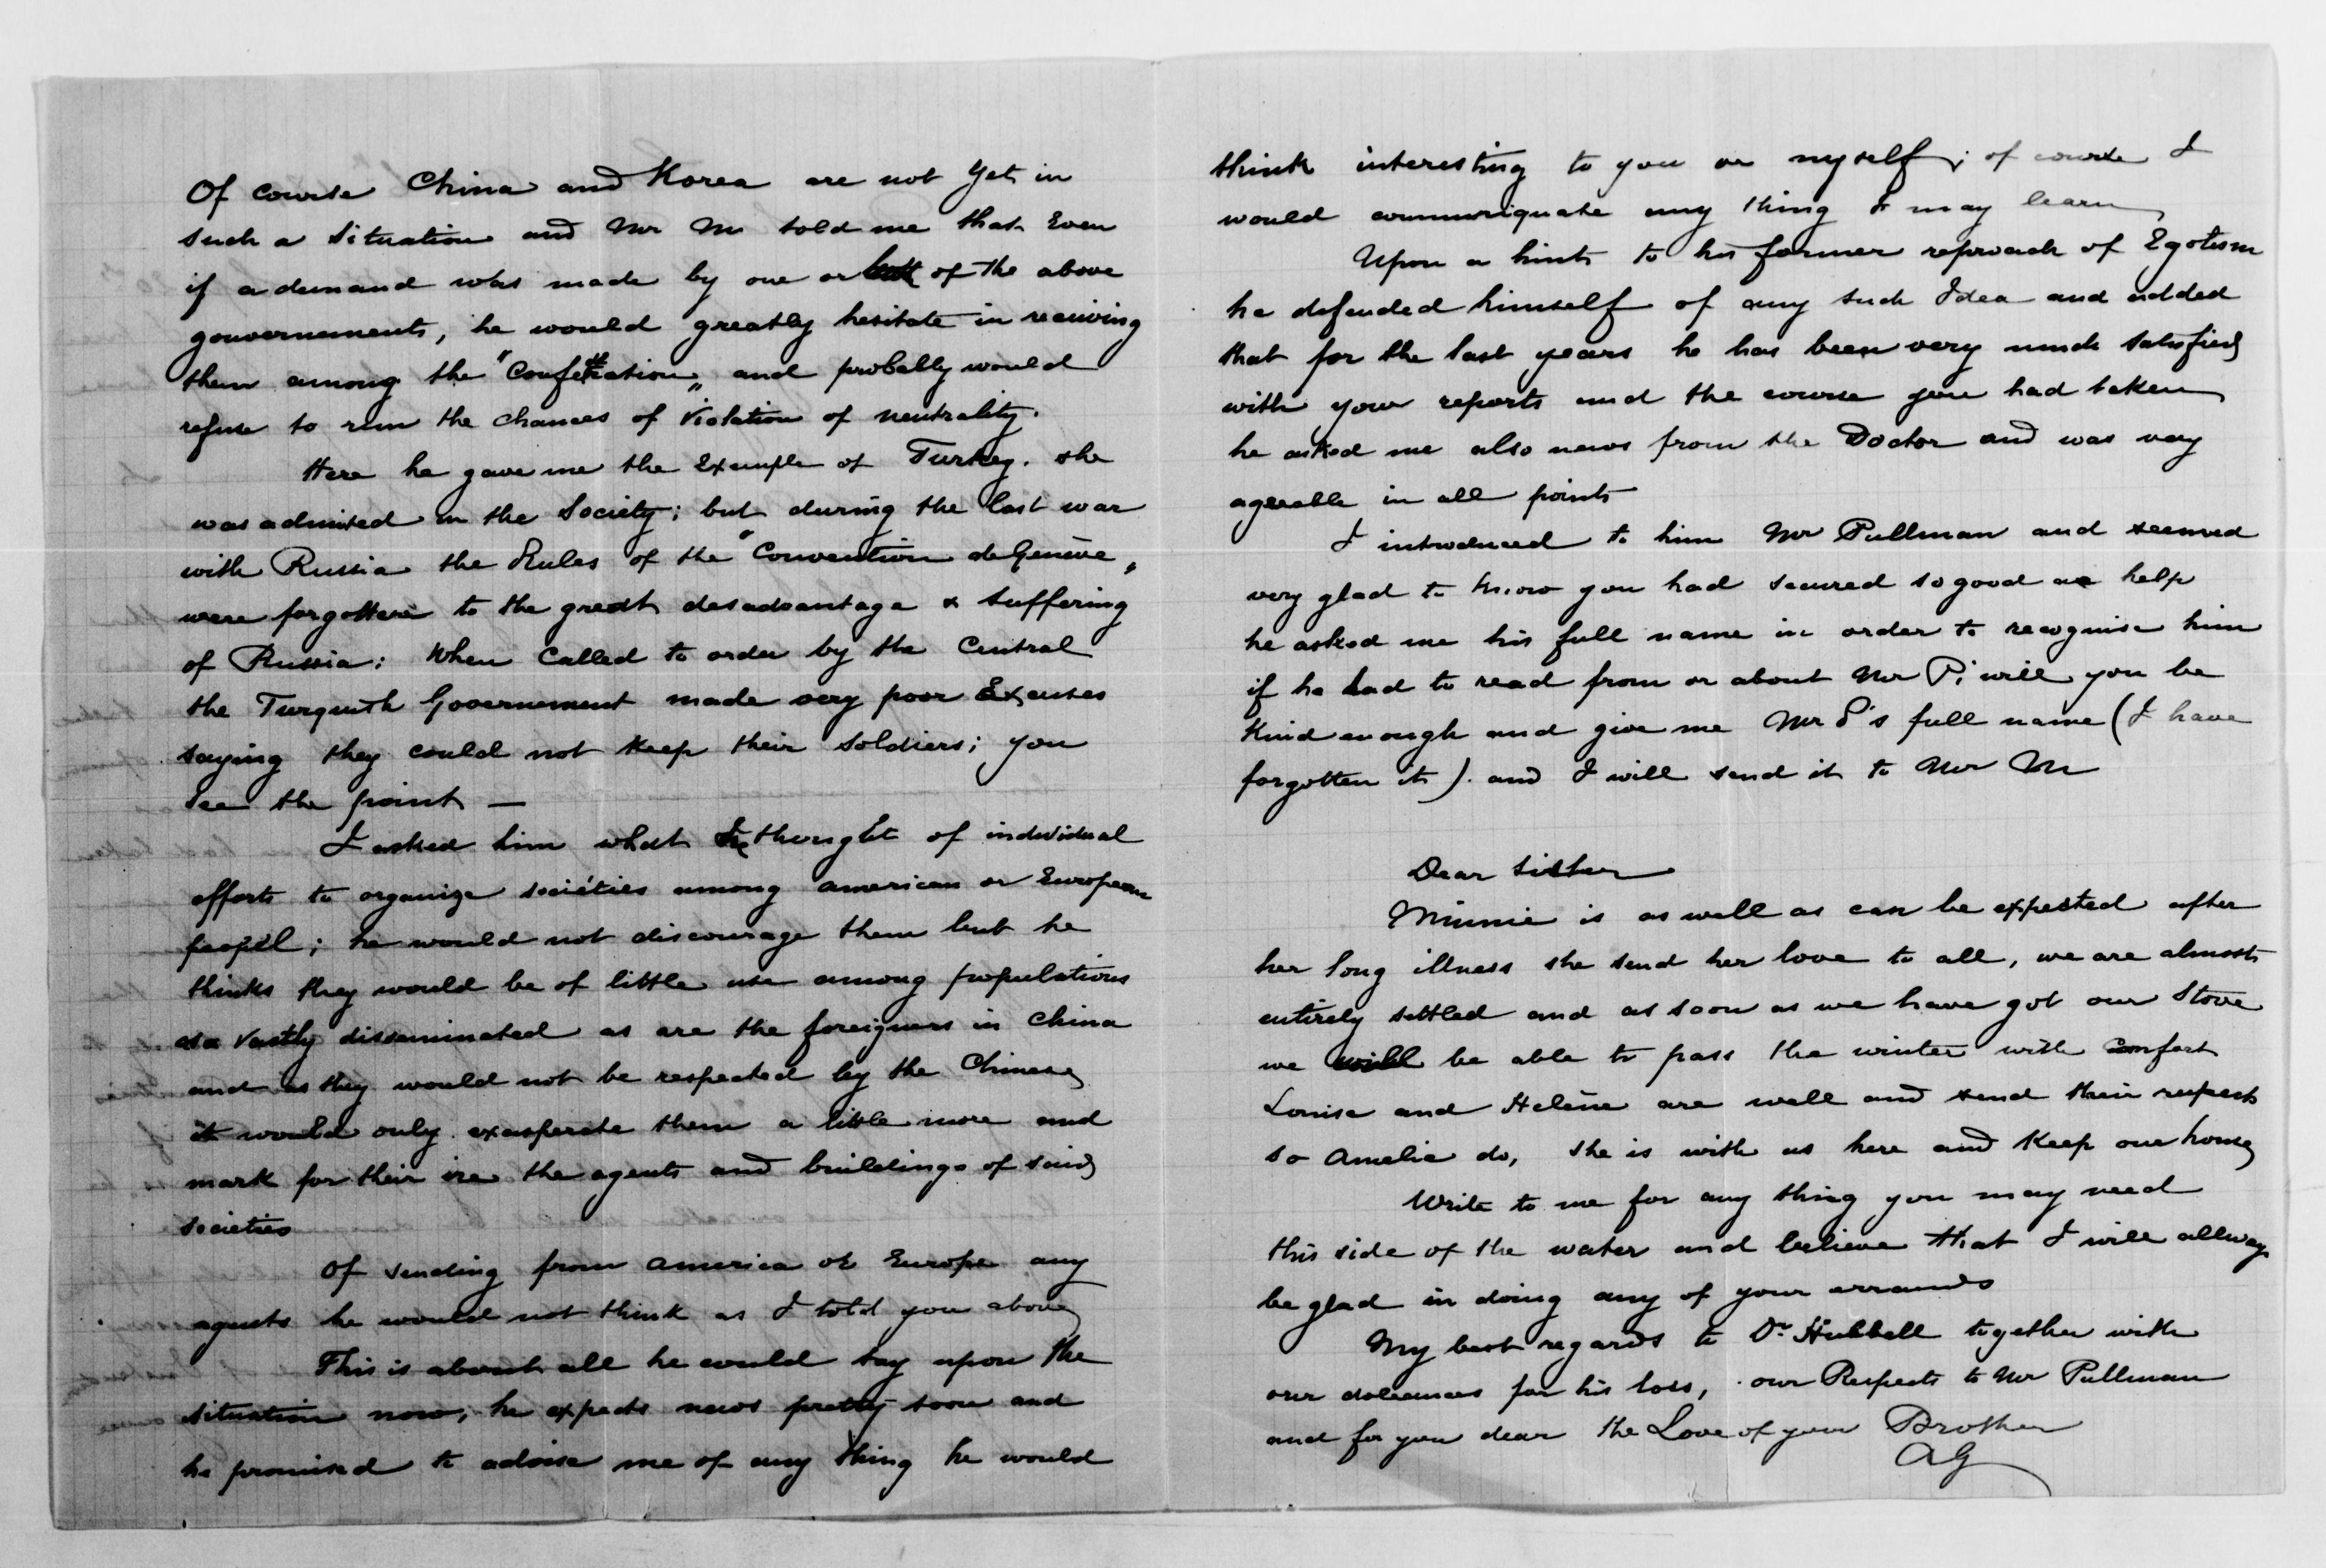 Of course China and Korea are not yet in
such a situation and Mr M told me that Even
if a demand was made by one or both of the above
gouvernements, he would greatly hesitate in receiving
them among the "Confétération" and probally would
refuse to run the chances of violation of neutrality.
Here he gave me the Example of Turkey. she
was admited in the Society; but during the last war
with Russia the Rules of the "Convention de Genève"
were forgotten to the great desadvantage & suffering
of Russia: When called to order by the Central
the Turquish Governement made very poor Excuses
saying they could not keep their soldiers; you
see the point —
I asked him what he thought of individual
efforts to organize sociéties among american or European
peopel; he would not discourage them but he
thinks they would be of little use among populations
so vastly disseminated as are the foreigners in China
and as they would not be respected by the Chinese
it would only exasperate them a little more and
mark for their ire the agents and buildings of said
societies
Of sending from America or Europe any
agents he would not think as I told you above
This is about all he could say upon the
situation now, he expects news pretty soon and
he promised to advise me of any thing he would
think interesting to you or myself; of course I
would communiquate any thing I may learn
Upon a hint to his former reproach of Egotism
he defended himself of any such Idea and added
that for the last years he has been very much satisfied
with your reports and the course you had taken
he asked me also news from the Doctor and was very
agreable in all points
I introduced to him Mr Pullman and seemed
very glad to know you had secured so good a help
he asked me his full name in order to recognise him
if he had to read from or about Mr P; will you be
kind enough and give me Mr P's full name (I have
forgotten it). and I will send it to Mr M
Dear Sister
Minnie is as well as can be expected after
her long illness she send her love to all, we are almost
entirely settled and as soon as we have got our Stove
we will be able to pass the winter with comfort
Louise and Helène are well and send their respects
so Amelie do, she is with us here and keep our house
Write to me for any thing you may need
this side of the water and believe that I will allways
be glad in doing any of your errands
My best regards to Dr Hubbell together with
our doleances for his loss, our Respects to Mr Pullman
and for you dear the Love of your Brother
AG